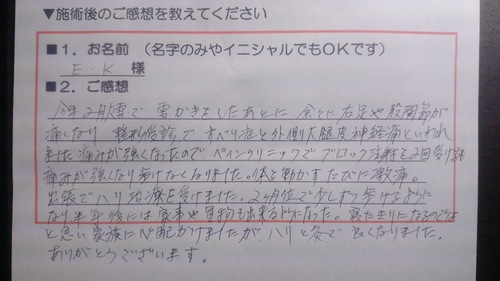 ▼施術後のご感想を教えてください
■1．お名前　（名字のみやイニシャルでもOKです）
E・K 様
■2．ご感想
今年2月雪で雪かきをしたあとに 余々に右足や股関節が
痛くなり 整形受診で すべり症と外側大腿皮神経痛といわれ
ました 痛みが強くなったので ペインクリニックでブロック注射を2回受けても
痛みが強くなり歩けなくなりました。体を動かすたびに激痛。
出張でハリ治療を受けました。2ヶ月位で少しずつ歩けるように
なり 半年後には家事や買物も出来るようになった。寝たきりになるのでは
と思い 家族に心配かけましたが ハリと灸で 良くなりました。
ありがとうございます。